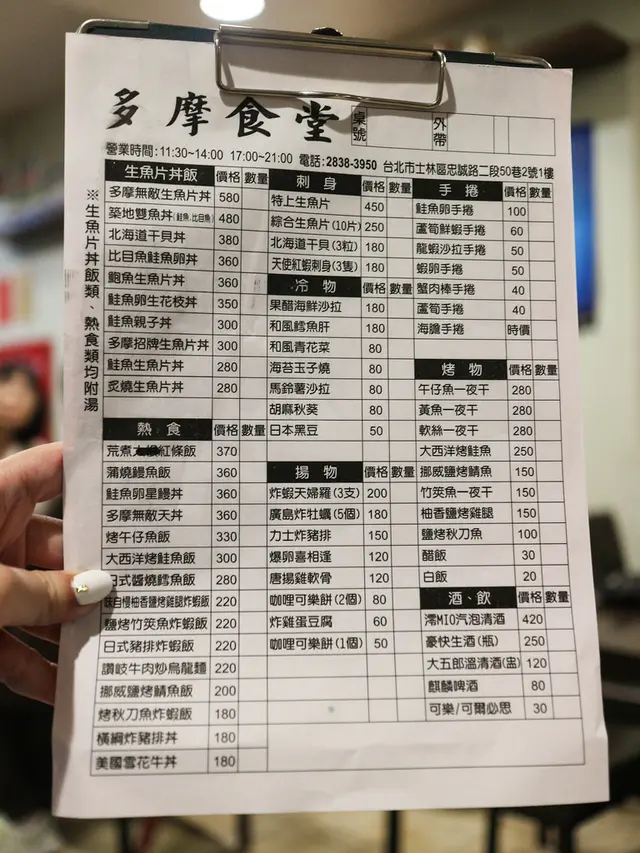 多摩食堂
桌號
外帶
營業時間:11:30~14:00 17:00~21:00 電話:2838-3950 台北市士林區忠誠路二段50巷2號1樓
※生魚片丼飯類、熱食類均附湯
生魚片丼飯 價格 數量
多摩無敵生魚片丼 580
築地雙魚丼(鮭魚.比目魚) 480
北海道干貝丼 380
比目魚鮭魚卵丼 360
鮑魚生魚片丼 360
鮭魚卵生花枝丼 350
鮭魚親子丼 300
多摩招牌生魚片丼 300
鮭魚生魚片丼 280
炙燒生魚片丼 280
熱食 價格 數量
荒煮 紅條飯 370
蒲燒鰻魚飯 360
鮭魚卵星鰻丼 360
多摩無敵天丼 360
烤午仔魚飯 330
大西洋烤鮭魚飯 300
日式醬燒鱈魚飯 280
味自慢柚香鹽烤雞腿炸蝦飯 220
鹽烤竹筴魚炸蝦飯 220
日式豬排炸蝦飯 220
讚岐牛肉炒烏龍麵 220
挪威鹽烤鯖魚飯 200
烤秋刀魚炸蝦飯 180
橫綱炸豬排丼 180
美國雪花牛丼 180
刺身 價格 數量
特上生魚片 450
綜合生魚片(10片) 250
北海道干貝(3粒) 180
天使紅蝦刺身(3隻) 180
冷物 價格 數量
果醋海鮮沙拉 180
和風鱈魚肝 180
和風青花菜 80
海苔玉子燒 80
馬鈴薯沙拉 80
胡麻秋葵 80
日本黑豆 50
揚物 價格 數量
炸蝦天婦羅(3支) 200
廣島炸牡蠣(5個) 180
力士炸豬排 150
爆卵喜相逢 120
唐揚雞軟骨 120
咖哩可樂餅(2個) 80
炸雞蛋豆腐 60
咖哩可樂餅(1個) 50
手捲 價格 數量
鮭魚卵手捲 100
蘆筍鮮蝦手捲 60
龍蝦沙拉手捲 50
蝦卵手捲 50
蟹肉棒手捲 40
蘆筍手捲 40
海膽手捲 時價
烤物 價格 數量
午仔魚一夜干 280
黃魚一夜干 280
軟絲一夜干 280
大西洋烤鮭魚 250
挪威鹽烤鯖魚 150
竹筴魚一夜干 150
柚香鹽烤雞腿 150
鹽烤秋刀魚 100
醋飯 30
白飯 20
酒、飲 價格 數量
澪MIO汽泡清酒 420
豪快生酒(瓶) 250
大五郎溫清酒(盅) 120
麒麟啤酒 80
可樂/可爾必思 30